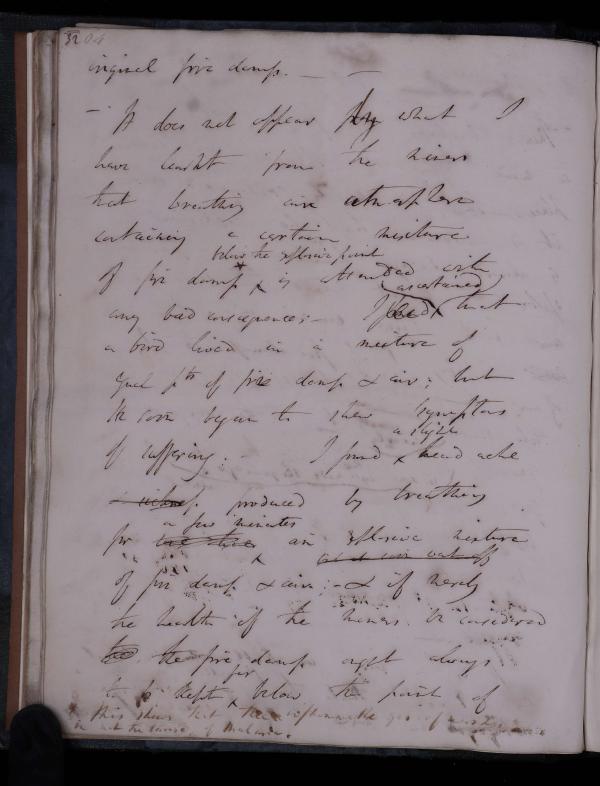 32 04
original fire damp. —
— It does not appear from what I
have learnt from the miners
that breathing an atmosphere
containing a certain mixture
below the explosive point
of fire damp is attended with
ascertained
any bad consequences;— I that
a bird lived in a mixture of
equal pts of fire damp & air; but
he soon began to shew symptoms
a slight
of suffering.— I found head ache
produced by breathing
a few minutes
for an explosive mixture
of fire damp & air;—& if merely
the health of the miners be considered
the fire damp ought always
far
to be kept below the point of
This shows that the gas of
is not the cause of Malaria.